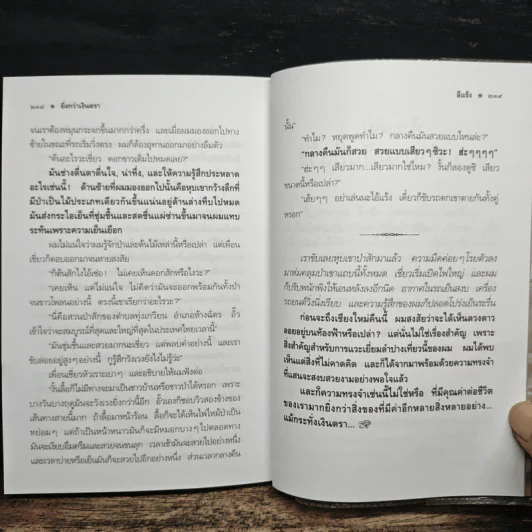 ๒๑๘ ยิ่งกว่าเงินตรา
จนเราต้องหมุนกระจกขึ้นมากกว่าครึ่ง และเมื่อผมมองออกไปทาง
ซ้ายในขณะที่รถเริ่มวิ่งตรง ผมก็ต้องอุทานออกมาอย่างลืมตัว
“ต้นอะไรวะเชี่ยว ดอกขาวเต็มไปหมดเลย?”
มันช่างตื่นตาตื่นใจ, น่าทึ่ง, และให้ความรู้สึกประหลาด
อะไรเช่นนี้! ด้านซ้ายที่ผมมองออกไปนั้นคือหุบเขากว้างลึกที่
มีป่าเป็นไม้ประเภทเดียวกันขึ้นแน่นอยู่ด้านล่างทึบไปหมด
มันส่งกระไอเย็นที่ชุ่มชื้นและสดชื่นแผ่ซ่านขึ้นมาจนผมแทบ
ระทันเพราะความเย็นเยือก
ผมไม่แน่ใจว่าผมรู้จักป่าและต้นไม้เหล่านี้หรือเปล่า แต่เพื่อน
เชี่ยวก็ตอบออกมาจนหายสงสัย
“ก็ต้นสักไงไอ้เซ่อ! ไม่เคยเห็นดอกสักหรือไงวะ?”
“เคยเห็น แต่ไม่แน่ใจ ไม่คิดว่ามันจะออกพร้อมกันทั้งป่า
จนขาวโพลนอย่างนี้ ตรงนี้เขาเรียกว่าอะไรวะ?”
“นี่คือสวนป่าสักของตำบลทุ่งเกวียน อำเภอห้างฉัตร อั๊ว
เข้าใจว่าจะสมบูรณ์ที่สุดและใหญ่ที่สุดในประเทศไทยเวลานี้”
“มันชุ่มชื้นและสวยมากนะเชี่ยว แต่พลบค่ำอย่างนี้ และเรา
ขับลอยอยู่สูงๆอย่างนี้ กูรู้สึกวังเวงยังไงไม่รู้ว่ะ”
เพื่อนเชี่ยวหัวเราะเบาๆ และอธิบายให้ผมฟังต่อ
“งั้นลื้อก็ไม่มีทางจะมาเป็นชาวบ้านหรือชาวป่าได้หรอก เพราะ
บางวันบางฤดูมันจะวังเวงยิ่งกว่านี้อีก อั๊วเองก็ชอบวิวสองข้างของ
เส้นทางสายนี้มาก ถ้าลื้อมาหน้าร้อน ลื้อก็จะได้เห็นไฟไหม้ป่าเป็น
หย่อมๆ แต่ถ้าเป็นหน้าหนาวมันก็จะมีหมอกบางๆไปตลอดทาง
มันจะเงียบขรึมครึมและสวยจนขนลุก เวลาเช้ามันจะสวยไปอย่างหนึ่ง
และเวลาบ่ายหรือเย็นมันก็จะสวยไปอีกอย่างหนึ่ง ส่วนเวลากลางคืน
ลีแร้ง ๒๑๙
นั้น”
“ทำไม? หยุดพูดทำไม? กลางคืนมันสวยแบบไหนล่ะ?”
“กลางคืนมันก็สวย สวยแบบเสียวๆซิวะ! ฮ่ะๆๆๆๆ”
“ฮ่ะๆๆ เสียวมาก...เสียวมากใช่ไหม? งั้นก็ลองดูซิ เสียว
ขนาดนี้หรือเปล่า?”
“เฮ้ยๆๆ อย่าเล่นนะไอ้แร้ง เดี๋ยวก็ขับรถตกเขาตายกันทั้งคู่
หรอก”
เราขับเลยหุบเขาป่าสักมาแล้ว ความมืดค่อยๆโรยตัวลง
มาห่มคลุมป่าเขาแถบนี้ทั้งหมด เชี่ยวเริ่มเปิดไฟใหญ่ และผม
ก็ปรับพนักพิงให้เอนหลังลงอีกนิด อากาศในรถเย็นสบ เครื่อง
รถยนต์วิ่งนิ่งเรียบ และความรู้สึกของผมก็ปลอดโปร่งเย็นระรื่น
ก่อนจะถึงเชียงใหม่คืนนี้ ผมสงสัยว่าจะได้เห็นดวงดาว
ลอยอยู่บนท้องฟ้าหรือเปล่า? แต่นั่นไม่ใช่เรื่องสำคัญ เพราะ
สิ่งสำคัญสำหรับการแวะเยี่ยมลำปางเที่ยวนี้ของผม ผมได้พบ
เห็นแต่สิ่งที่ไม่คาดคิด และก็ได้จากมาพร้อมด้วยความทรงจำ
ที่แสนจะสงบสวยงามอย่างพอใจแล้ว
และก็ความทรงจำเช่นนี้ไม่ใช่หรือ ที่มีคุณค่าต่อชีวิต
ของเรามากยิ่งกว่าสิ่งของที่มีค่าอีกหลายสิ่งหลายอย่าง...
แม้กระทั่งเงินตรา...